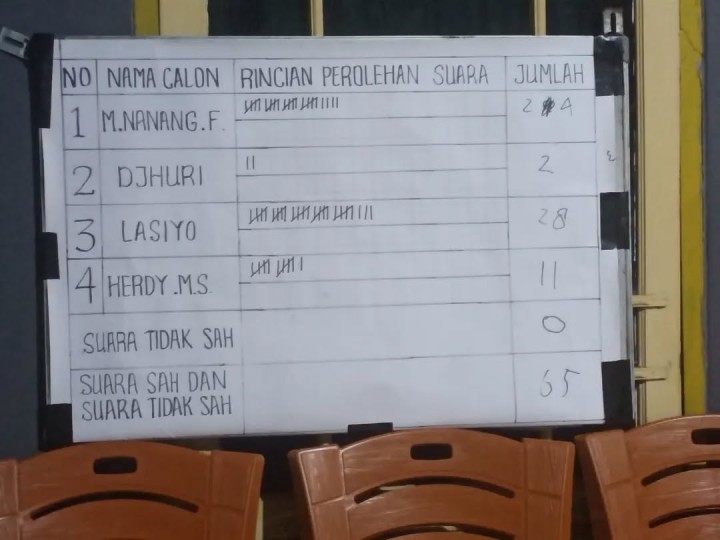 NO NAMA CALON RINCIAN PEROLEHAN SUARA JUMLAH
1 M.NANANG.F. 24
2 DJHURI 2
3 LASIYO 28
4 HERDY.M.S. 11
SUARA TIDAK SAH 0
SUARA SAH DAN
SUARA TIDAK SAH 65